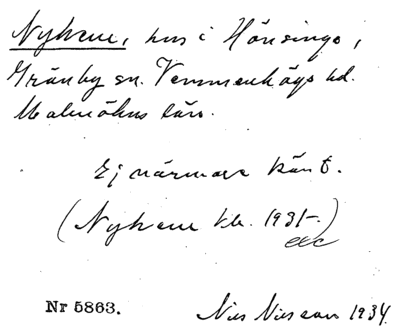 Nyhem, hus i Hönsinge,
Grönby sn. Vemmenhögs hd.
Malmöhus län.
Ej närmare känt.
(Nyhem kb. 1931-.)
Nr 5863.
Nils Nilsson 1934.